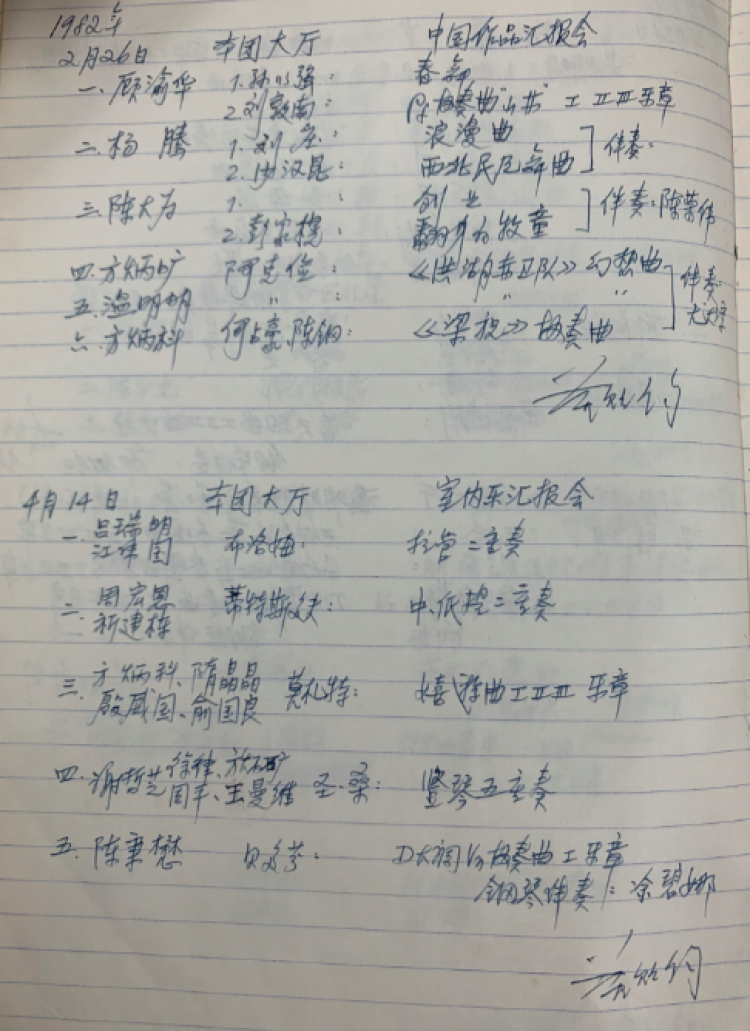 1982年
2月26日 本团大厅 中国作品汇报会
一、顾渝华 1. 孙以强: 春舞
2. 刘敦南: 协奏曲"山林" I II III 乐章
二、杨腾 1. 刘庄: 浪漫曲
2. 沙汉昆: 西北民凡舞曲 伴奏:
三、陈大为 1. 创业 伴奏:陈荣伟
2. 彭家幌: 翻身的牧童
四、方炳旷 阿克俭: 《洪湖赤卫队》幻想曲
五、温明明 〃: 〃 〃 伴奏:
六、方炳科 何占豪、陈钢: 《梁祝》协奏曲
4月14日 本团大厅 室内乐汇报会
一、吕瑞明 布洛姆: 拉管二重奏
江
二、周宏恩 蒂特斯: 中、低提二重奏
新建栋
三、方炳科、隋晶晶 莫扎特: 嬉游曲 I II III 乐章
殷威国、俞国良
四、谢哲芝 圣·桑: 竖琴五重奏
周平、王曼维
五、陈秉懋 贝多芬: D大调Vn协奏曲 I 乐章
钢琴伴奏:涂碧娜